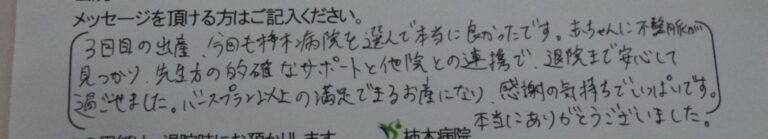 メッセージを頂ける方はご記入ください。
3回目の出産、今回も柿木病院を選んで本当に良かったです。赤ちゃんに不整脈が
見つかり、先生方の的確なサポートと他院との連携で、退院まで安心して
過ごせました。バースプラン以上の満足できるお産になり、感謝の気持ちでいっぱいです。
本当にありがとうございました。
柿木病院